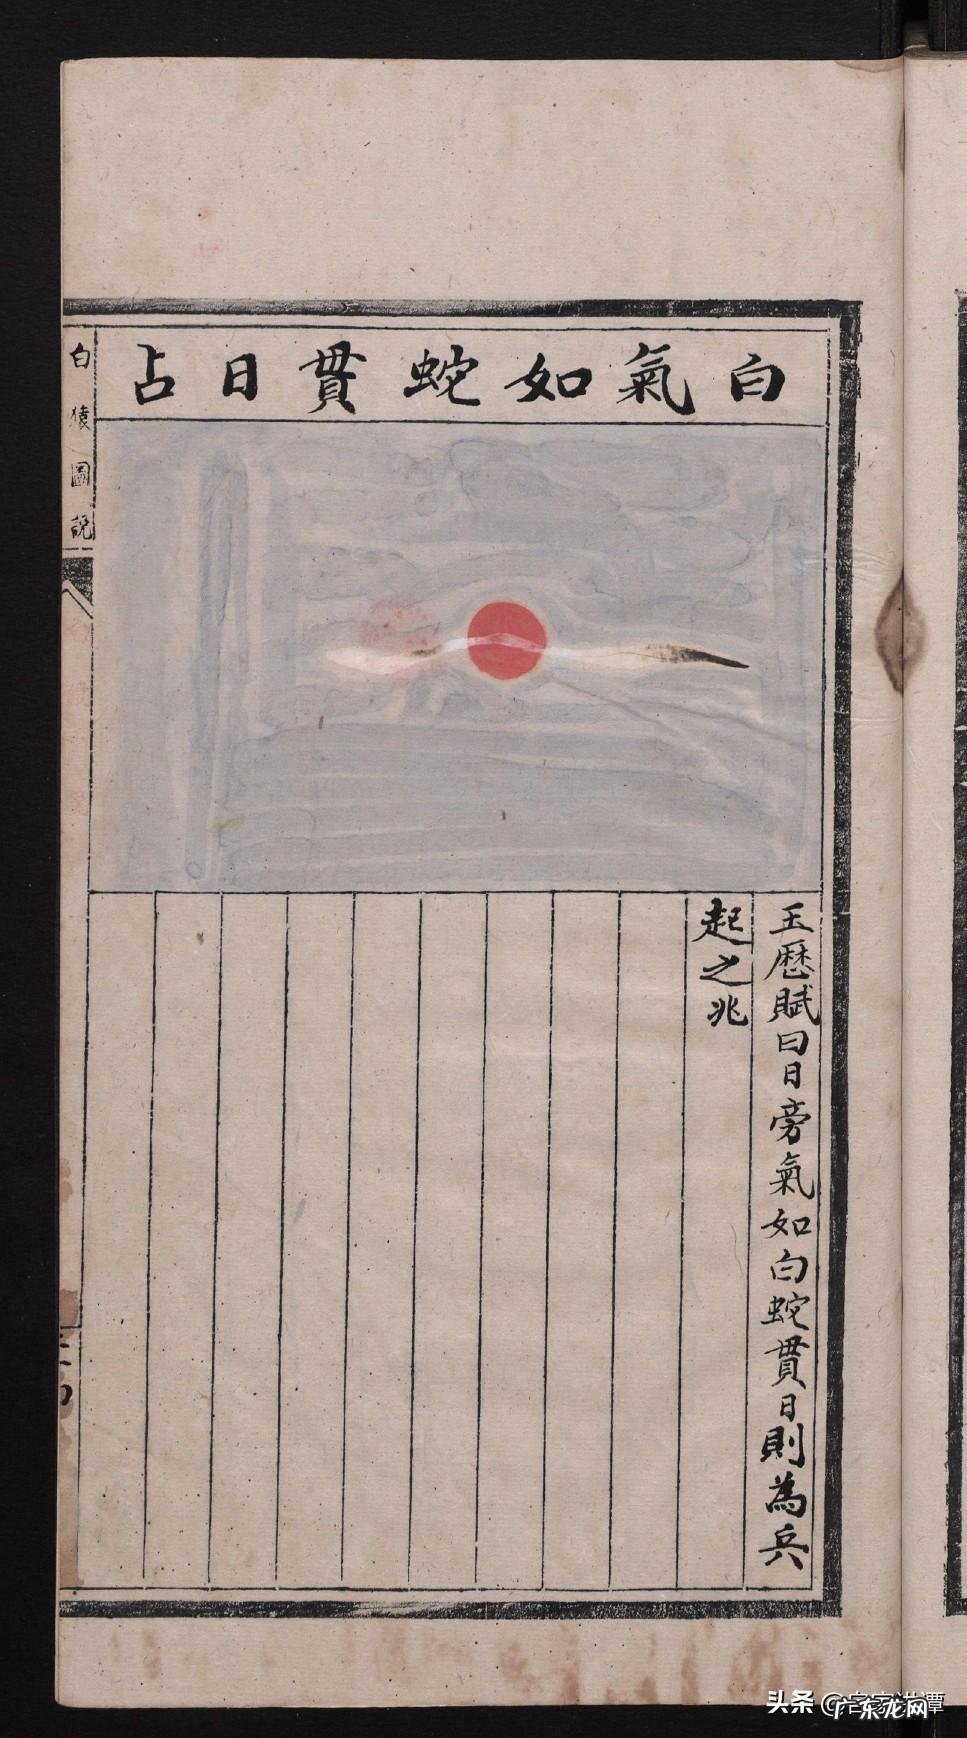 白氣如蛇貫日占
玉歷賦曰日旁氣如白蛇貫日則為兵
起之兆
白猿圖說
頭条
广东龙网